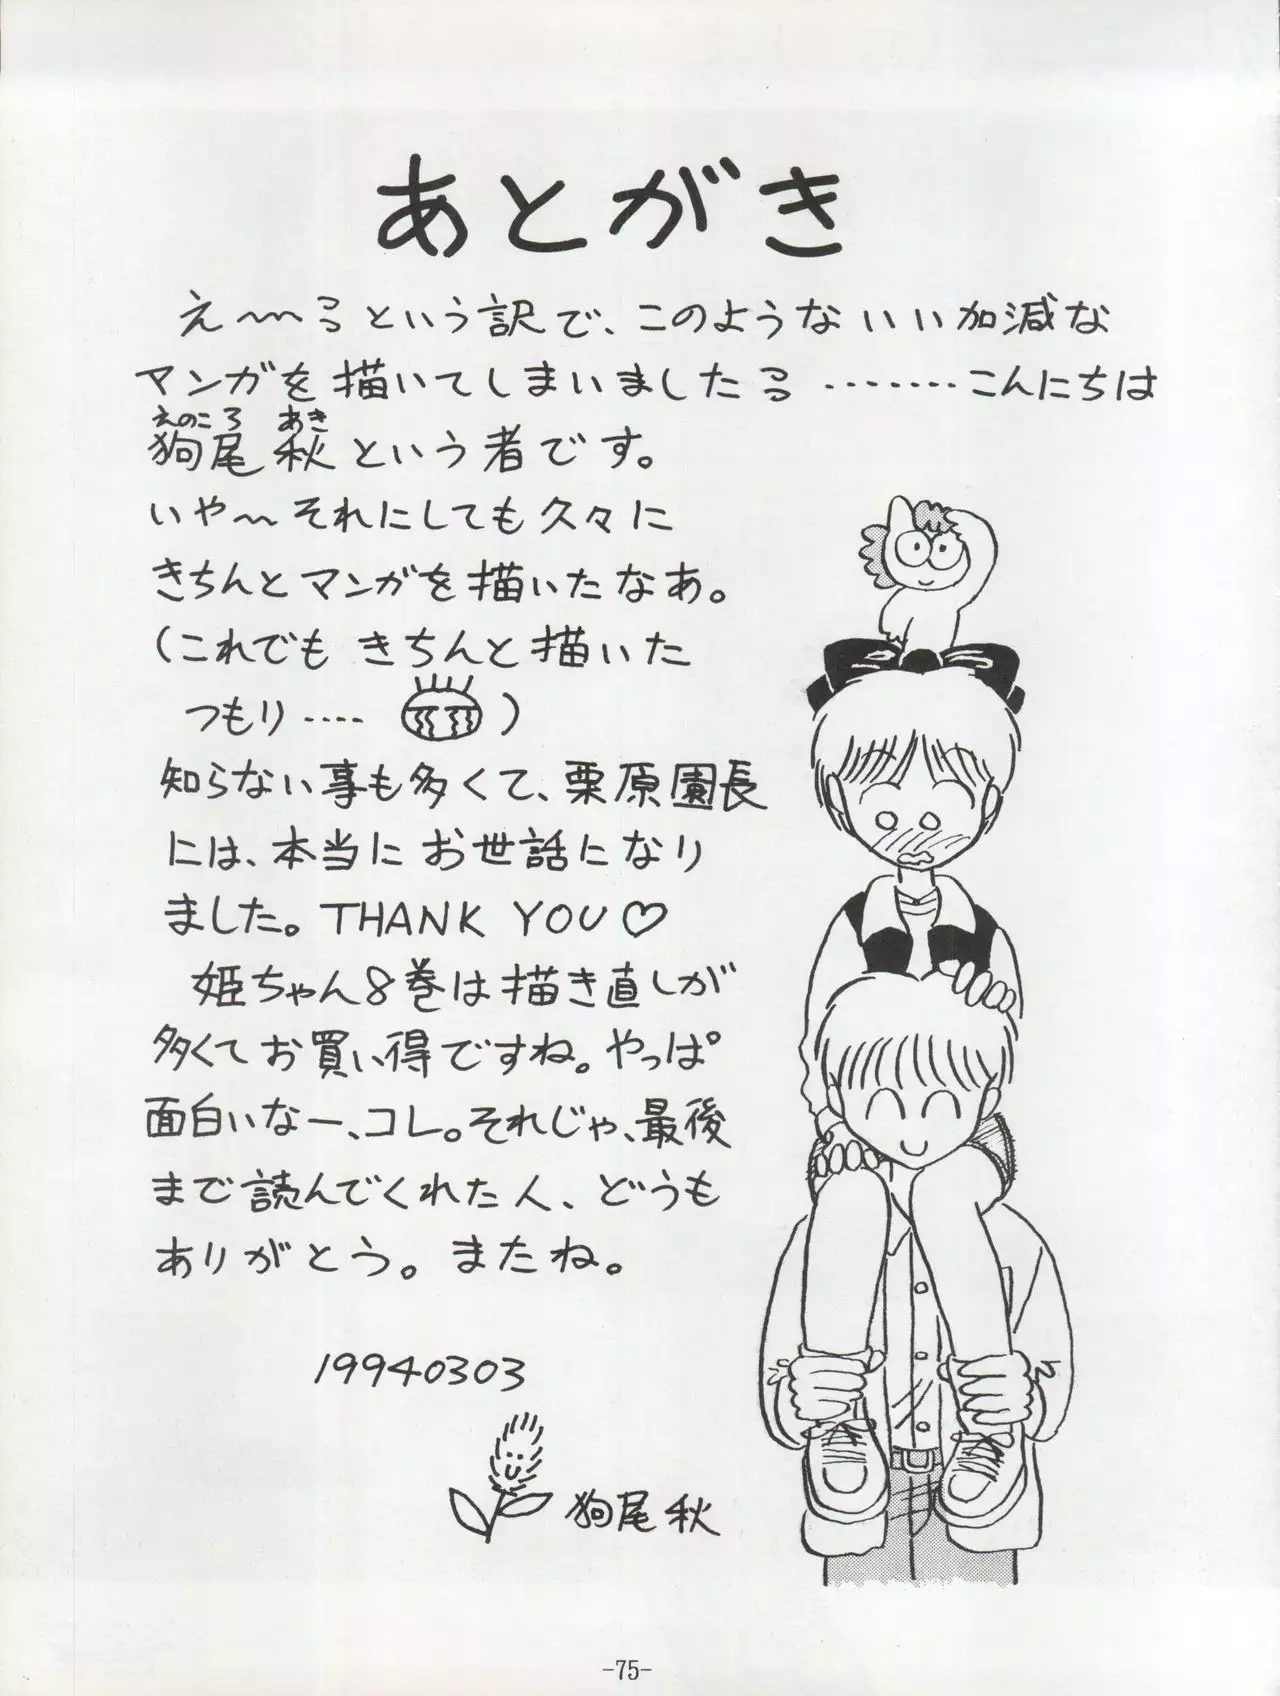 あとがき
え〜〜っっという訳で、このようないい加減な
マンガを描いてしまいましたっっ………こんにちは
えのころ あき
狗尾 秋という者です。
いや〜それにしても久々に
きちんとマンガを描いたなあ。
(これでも きちんと描いた
つもり‥‥ )
知らない事も多くて、栗原園長
には、本当にお世話になり
ました。THANK YOU♡
姫ちゃん8巻は描き直しが
多くてお買い得ですね。やっぱ
面白いなー、コレ。それじゃ、最後
まで読んでくれた人、どうも
ありがとう。またね。
19940303
狗尾 秋
-75-